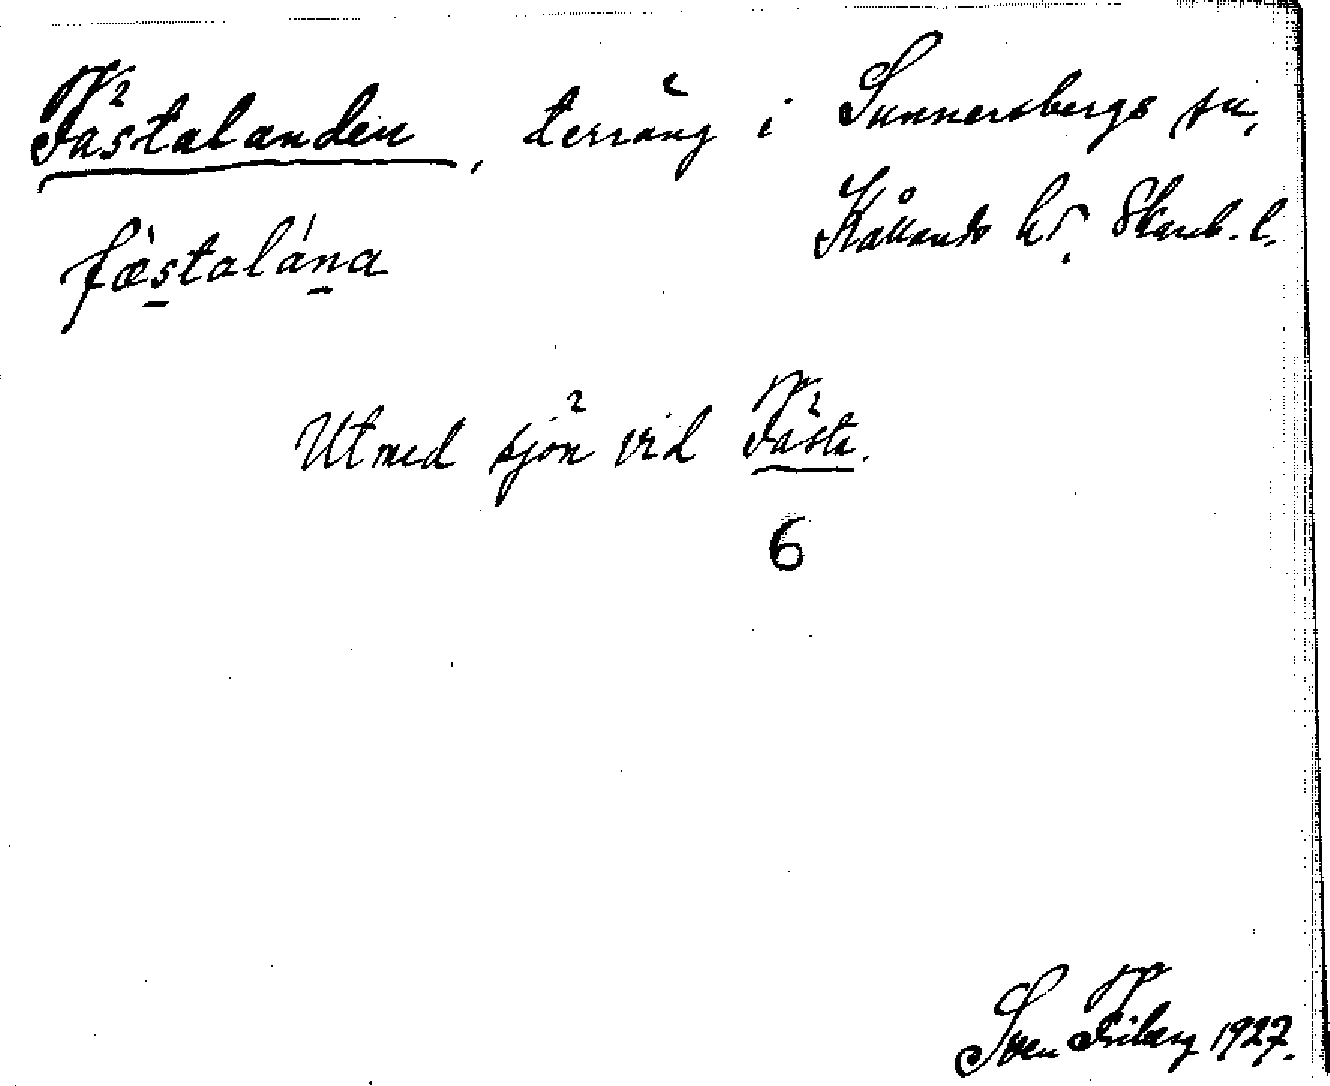 Fästalanden, terräng i Sunnersbergs sn,
Kållands hd. Skarab. l.
fæ̀stalána
Utmed sjön vid Fästa.
6
Sven Friberg 1927.